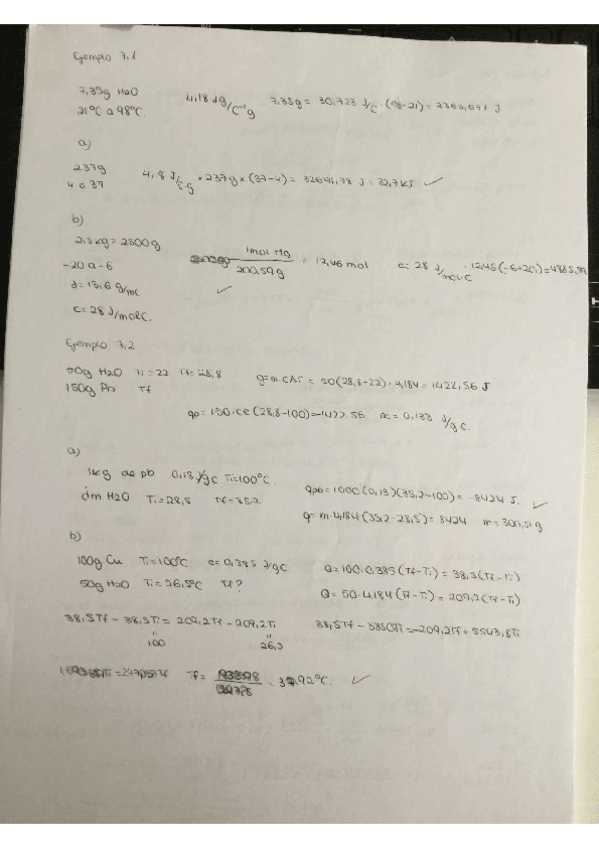 Ejemplo 7.1
7,35g H2O
21°C a 98°C.
4,18 Jg/C⁻¹g · 7,35g = 30,723 J/C · (98-21) = 2365,671 J
a)
237g
4 a 37
4,8 J/C·g × 237g × (37-4) = 32691,78 J = 32,7 kJ ✓
b)
2,5kg = 2500g
-20 a -6
d = 13,6 g/mL
c = 28 J/molC.
1mol Hg / 200,59g = 12,46 mol
c = 28 J/mol·C · 12,46 (-6+20) =
✓
Ejemplo 7.2
50g H2O Ti = 22 Tf = 28,8
150g Pb Tf
q = m·CΔT = 50(28,8-22)·4,184 = 1422,56 J
qp = 150·ce(28,8-100) = -1422,56 ce = 0,133 J/g C.
a)
1kg de pb 0,13 J/gC Ti = 100°C.
dm H2O Ti = 28,5 Tf = 35,2
qpb = 1000(0,13)(35,2-100) = -8424 J. ✓
q = m·4,184(35,2-28,5) = 8424 m = 300,51g
b)
100g Cu Ti = 100°C c = 0,385 J/gC
50g H2O Ti = 26,5°C Tf?
Q = 100·0,385(Tf-Ti) = 38,5(Tf-Ti)
Q = 50·4,184(Tf-Ti) = 209,2(Tf-Ti)
38,5Tf - 38,5Ti = 209,2Tf - 209,2Ti
100 26,5
38,5Tf - 3850Ti = -209,2Tf + 5543,8Ti
Tf =
37,92°C. ✓